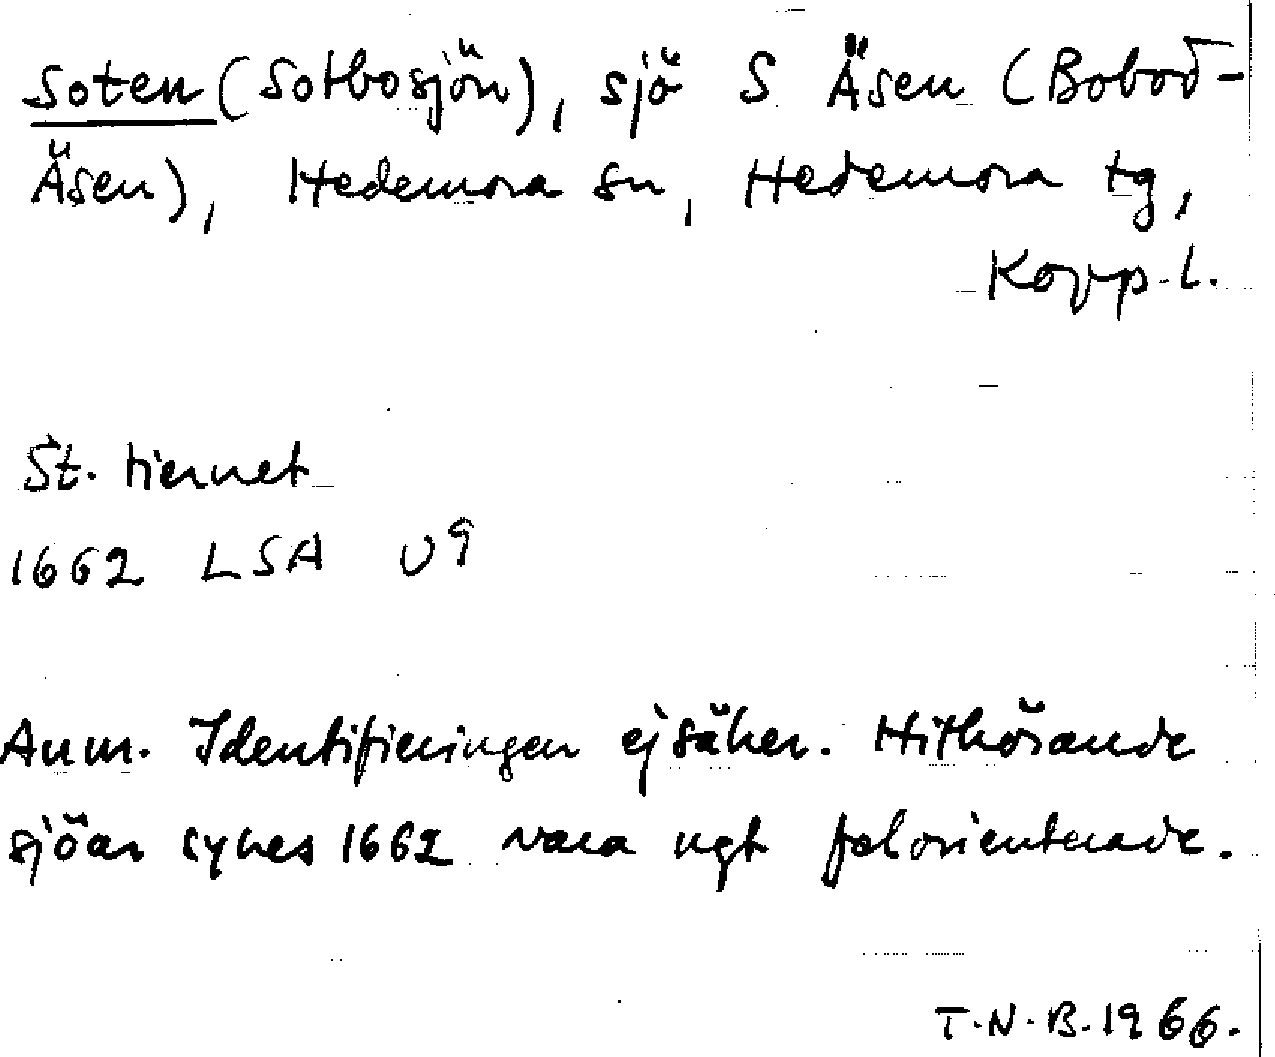 Soten (Sotbosjön), sjö S Äsen (Bobod-
Äsen), Hedemora sn, Hedemora tg,
Kopp. l.
St. tiernet
1662 LSA U9
Anm. Identifieringen ej säker. Hithörande
sjöar synes 1662 vara ngt felorienterade.
T.N.B. 1966.